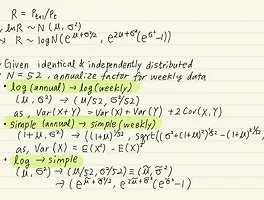 R = Pt+1/Pt
lnR ~ N(μ, σ²)
R ~ logN(e^(μ+σ²/2), e^(2μ+σ²)(e^(σ²)-1))
Given identical & independently distributed
N = 52, annualize factor for weekly data
• log (annual) → log (weekly)
(μ, σ²) → (μ/52, σ²/52)
as, Var(X+Y) = Var(X) + Var(Y) + 2Cov(X,Y)
• simple (annual) → simple (weekly)
(1+μ, σ²) → ((1+μ)^(1/52), sqrt((σ²+(1+μ)²)^(1/52) - (1+μ)^(2/52)
as, Var(X) = E(X²) - E(X)²
• log → simple
(μ, σ²) → (μ/52, σ²/52) ≡ (μ̃, σ̃²)
→ (e^(μ̃+σ̃²/2), e^(2μ̃+σ̃²)(e^(σ̃²)-1)